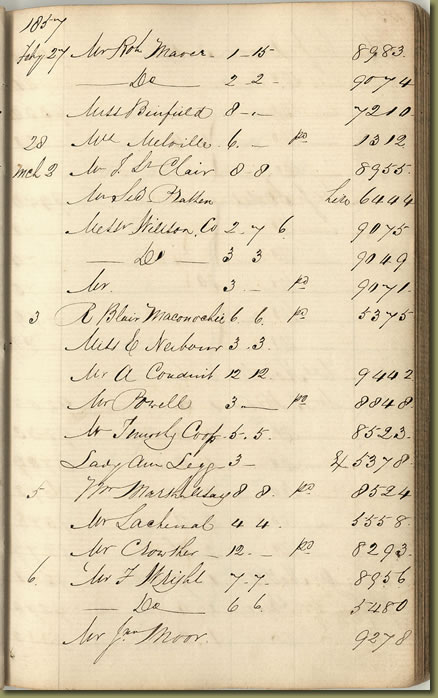 1857
Feby 27 Mr Robt Maver 1-15 8983
— Do — 2 2 - 9074
Miss Binfield 8 - - 7210
28 Melville 6. — pd 1312
Mch 2 Mr J St Clair 8-8 8955
6444
Messrs Willson, Co 2-7 6. 9075
— Do — 3 3 9049
Mr. 3 - pd 9071
3 R Blair Maconochie 6. 6. pd 5375
Miss E 3.3.
Mr A Conduit 12 12 9442
Mr Powell 3 — pd 8848
Mr Timothy Coop 5.5. 8523
Lady Ann Legg 3 - & 5378
5 Wm Marshallsay 8 8. pd 8524
Mr Lachenal 4 4 5558
Mr Crowther 12. - pd 8293
6. Mr F Wright 7.7. 8956
— Do — 6 6 5480
Mr Jno Moor. 9278